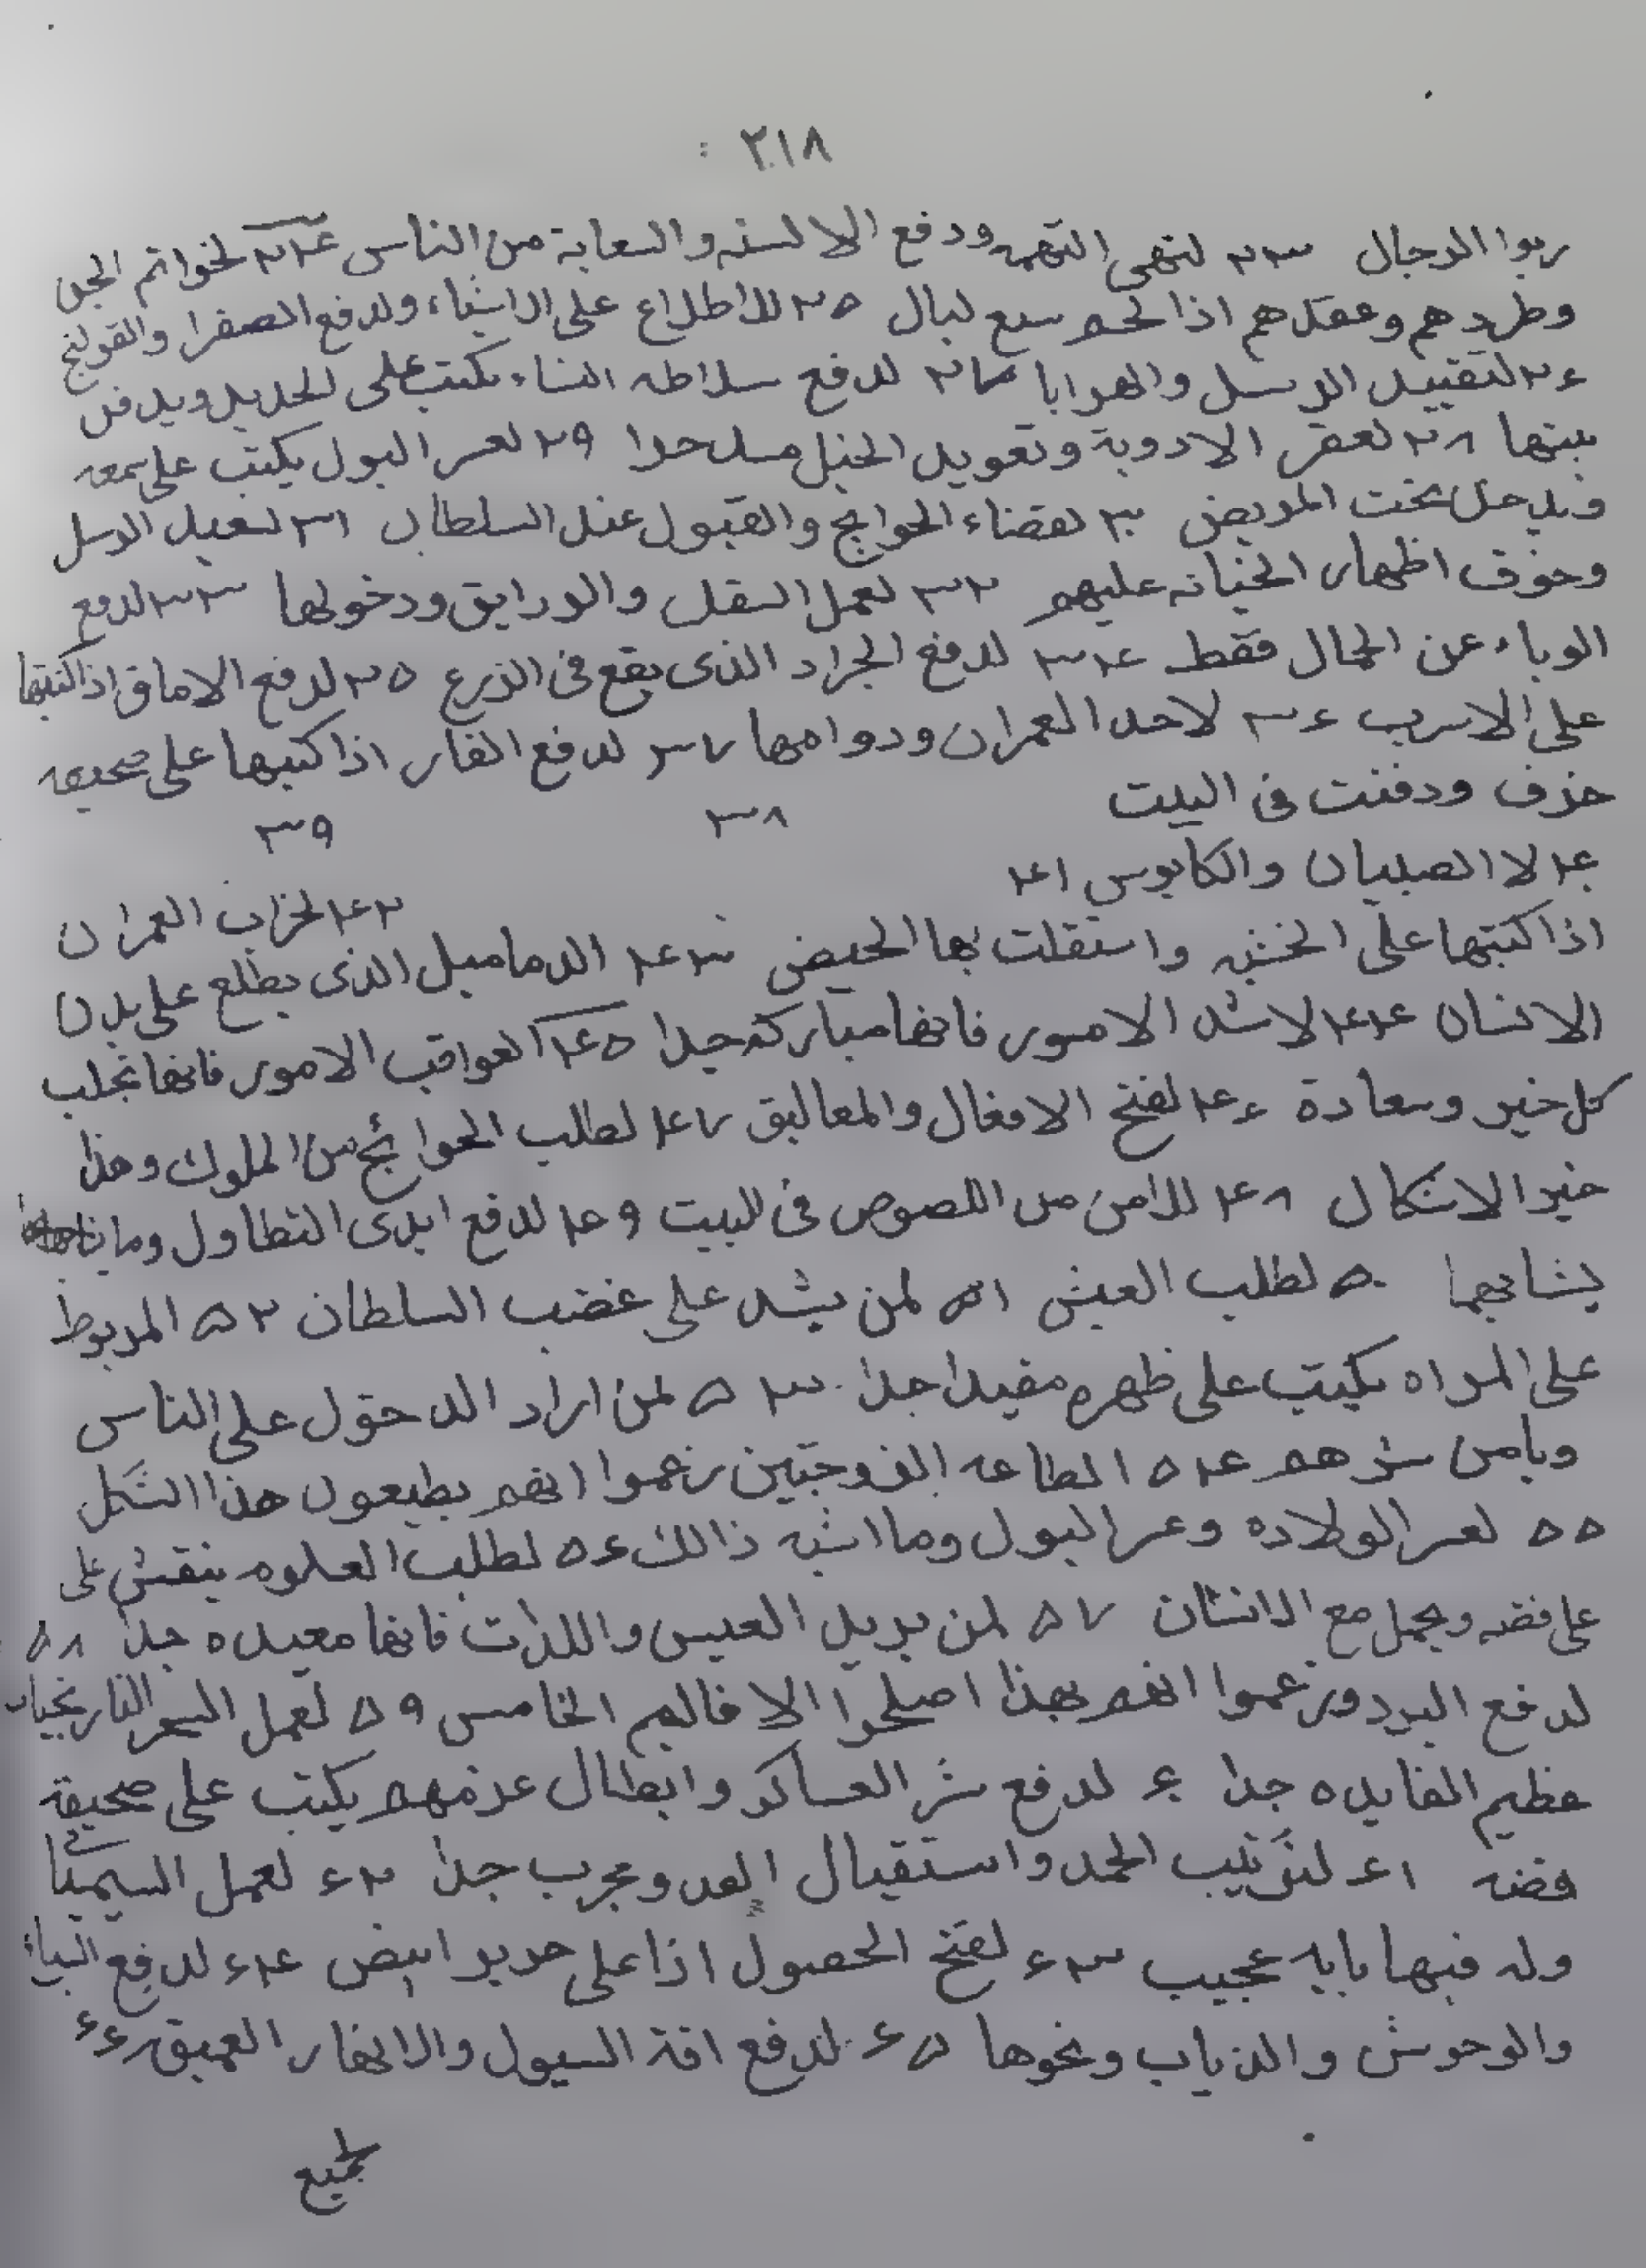 ٢١٨ :
ربوا الرجال ٢٣ لنهى التهمه ودفع الالسنه والسعاية من الناس ٢٤ لخواتم الجن
وطردهم وعقدهم اذا لحم سبع ليال ٢٥ للاطلاع على الاشياء ولدفع الصفرا والقولنج
٢٦ لتقييد الرسل والهدايا ٢٧ لدفع سلاطه النساء يكتب على الحديد ويدفن
ببيتها ٢٨ لعقر الادوية وتعويد الخيل ٢٩ لعسر البول يكتب على شمعه
ويدخل تحت المريض ٣٠ لقضاء الحوايج والقبول عند السلطان ٣١ الرسل
وخوف اظهار الخيانه عليهم ٣٢ لعمل النقل والورايق ودخولها ٣٣ لدفع
الوباء عن الجمال فقط ٣٤ لدفع الجراد الذى يقع فى الزرع ٣٥ لدفع الاماق اذا كتبتها
على الاسرب ٣٦ لاحد العمران ودوامها ٣٧ لدفع الفار اذا كتبها على صحيفه
خزف ودفنت فى البيت ٣٨ ٣٩
٤٠ لا الصبيان والكابوس ٤١ ٤٢ لخراب العمران
اذا كتبتها على الخشبه واستقلت بها الحيض ٤٣ الدماميل الذى يطلع على بدن
الانسان ٤٤ لاشد الامور فانها مباركة جدا ٤٥ العواقب الامور فانها تجلب
كل خير وسعادة ٤٦ لفتح الاقفال والمعاليق ٤٧ لطلب الحوائج من الملوك وهذا
خير الاشكال ٤٨ للامن من اللصوص فى البيت ٤٩ لدفع ايدى التطاول وما
يشابهما ٥٠ لطلب العيش ٥١ لمن يشد على غضب السلطان ٥٢ المربوط
على المراه يكتب على ظهره مفيدا جدا ٥٣ لمن اراد الدخول على الناس
ويامن شرهم ٥٤ الطاعه الزوجتين زعموا انهم يطيعون هذا الشكل
٥٥ لعسر الولاده وعسر البول وما اشبه ذالك ٥٦ لطلب العلوم ينقش على
على فضه ويحمل مع الانسان ٥٧ لمن يريد العيس واللذات فانها مفيده جدا ٥٨
لدفع البرد وزعموا انهم بهذا اصلحوا الاقاليم الخامس ٥٩ لعمل السحر النارنجيات
عظيم الفايده جدا ٦٠ لدفع شر العساكر وابطال عزمهم يكتب على صحيفة
فضه ٦١ لترتيب الحمد واستقبال العدو مجرب جدا ٦٢ لعمل السيميا
وله فيها بابه عجيب ٦٣ لفتح الحصول اذا على حرير ابيض ٦٤ لدفع السباع
والوحوش والذياب ونحوها ٦٥ لدفع افة السيول والانهار العميق ٦٦
لجميع